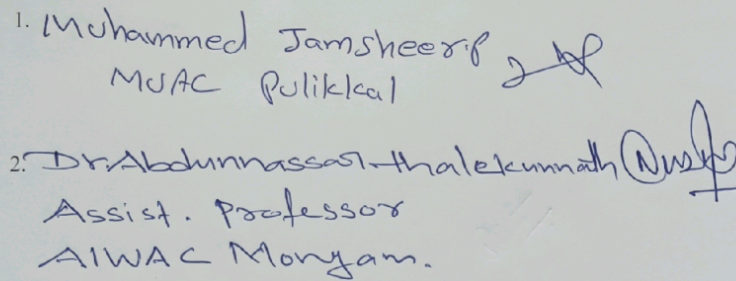 1. Muhammed Jamsheer.P
MUAC Pulikkal
2. Dr. Abdunnassar thalekunnath
Assist. Professor
AIWAC Mongam.